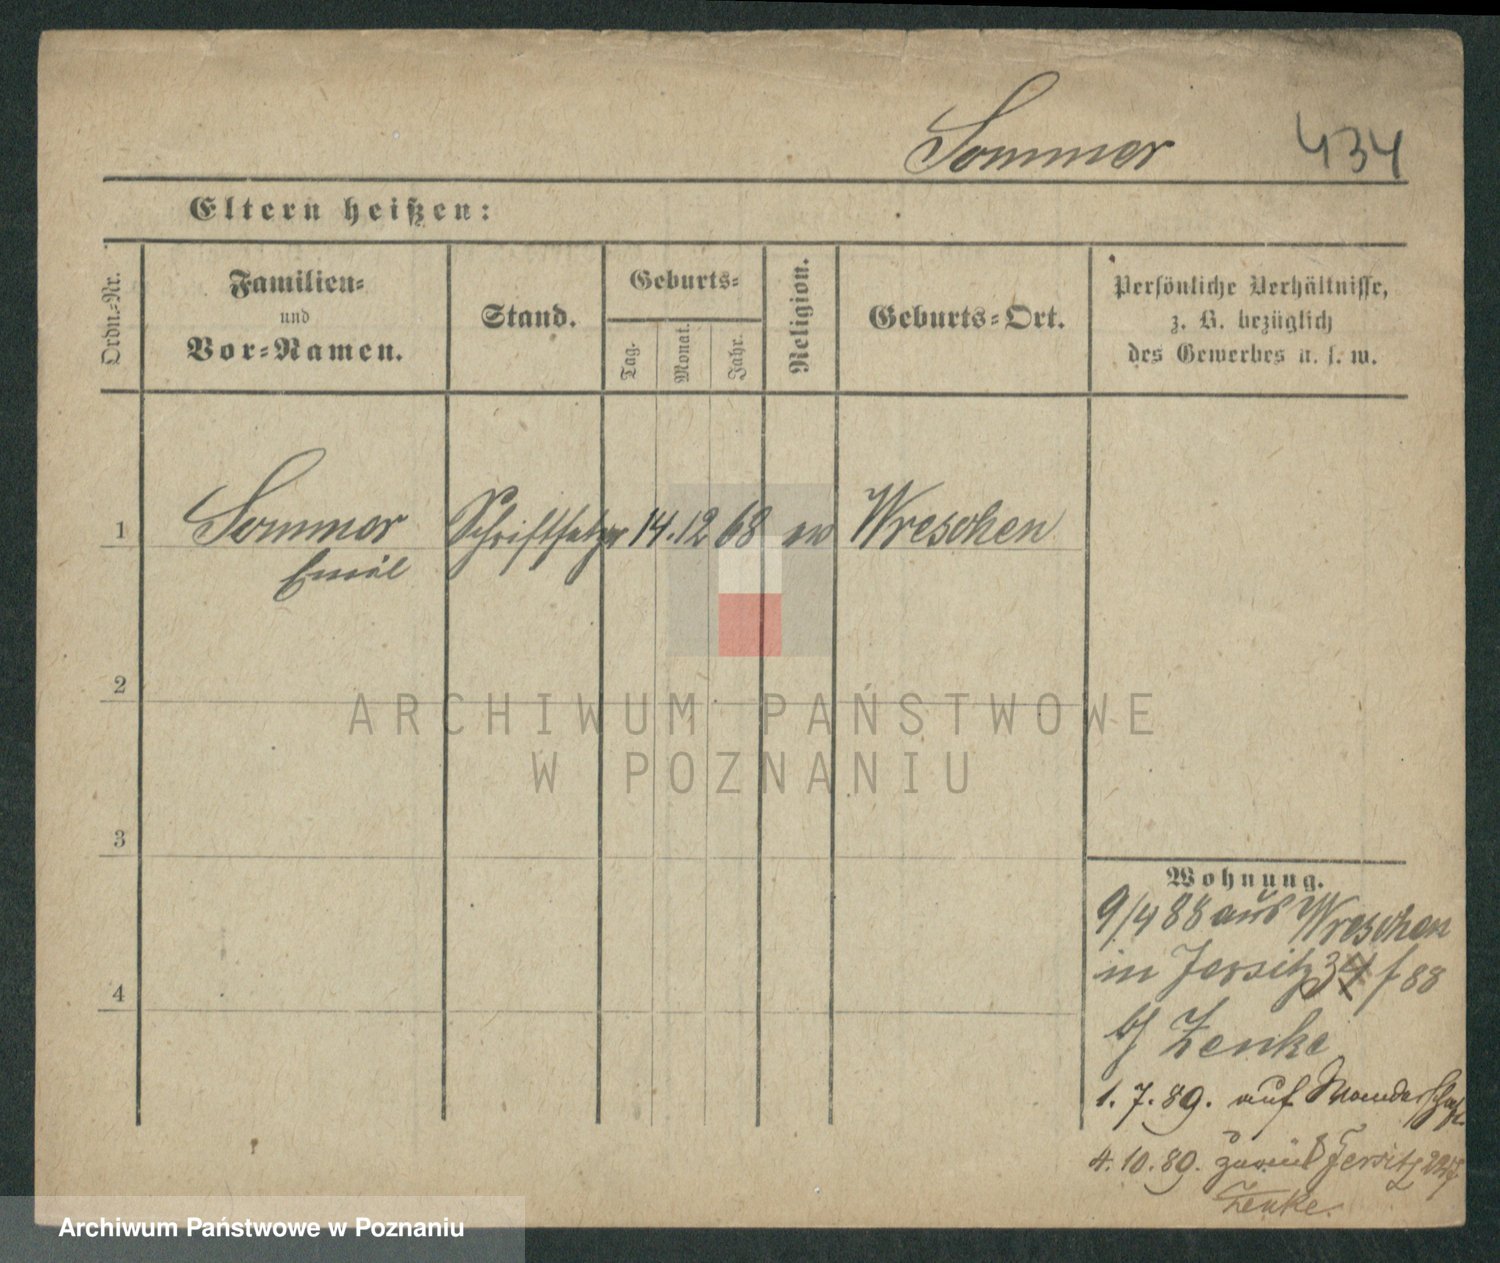 Sommer 434
Eltern heißen:
Ordn.-Nr.
Familien-
und
Vor-Namen.
Stand.
Geburts-
Tag.
Monat.
Jahr.
Religion.
Geburts-Ort.
Persönliche Verhältnisse,
z. B. bezüglich
des Gewerbes u. s. w.
1 Sommer Schriftsetzer 14. 12 68 ev Wreschen
Emil
2
3
4
ARCHIWUM PAŃSTWOWE
W POZNANIU
Wohnung.
9/4 88 aus Wreschen
in Jersitz 34 f 88
bj Zenke
1. 7. 89. auf Wanderschaft
4. 10. 89. zurück Jersitz
Zenke.
Archiwum Państwowe w Poznaniu